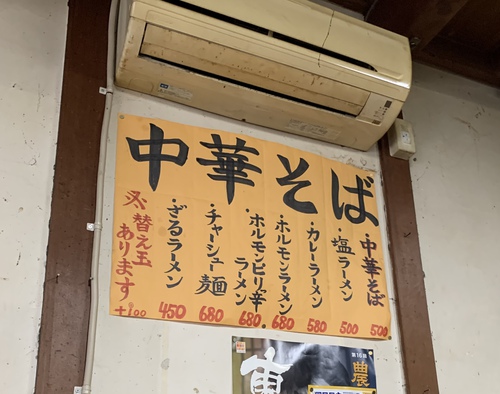 中華そば
・中華そば 500
・塩ラーメン 500
・カレーラーメン 580
・ホルモンラーメン 680
・ホルモンピリッ辛ラーメン 680.
チャーシュー麺 680
・ざるラーメン 450
替え玉あります +100
第16回
農